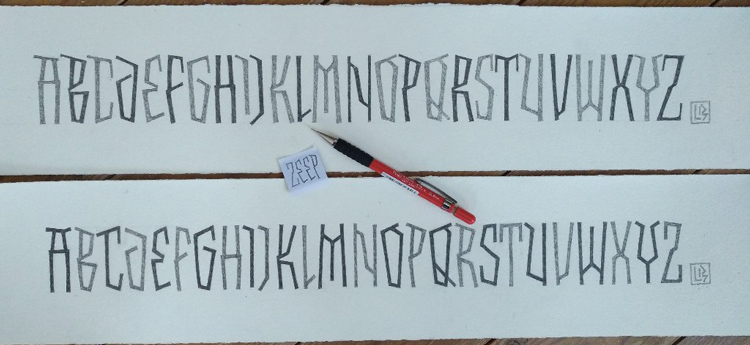 ABCDEFGHIJKLMNOPQRSTUVWXYZ
ZEEP
ABCDEFGHIJKLMNOPQRSTUVWXYZ